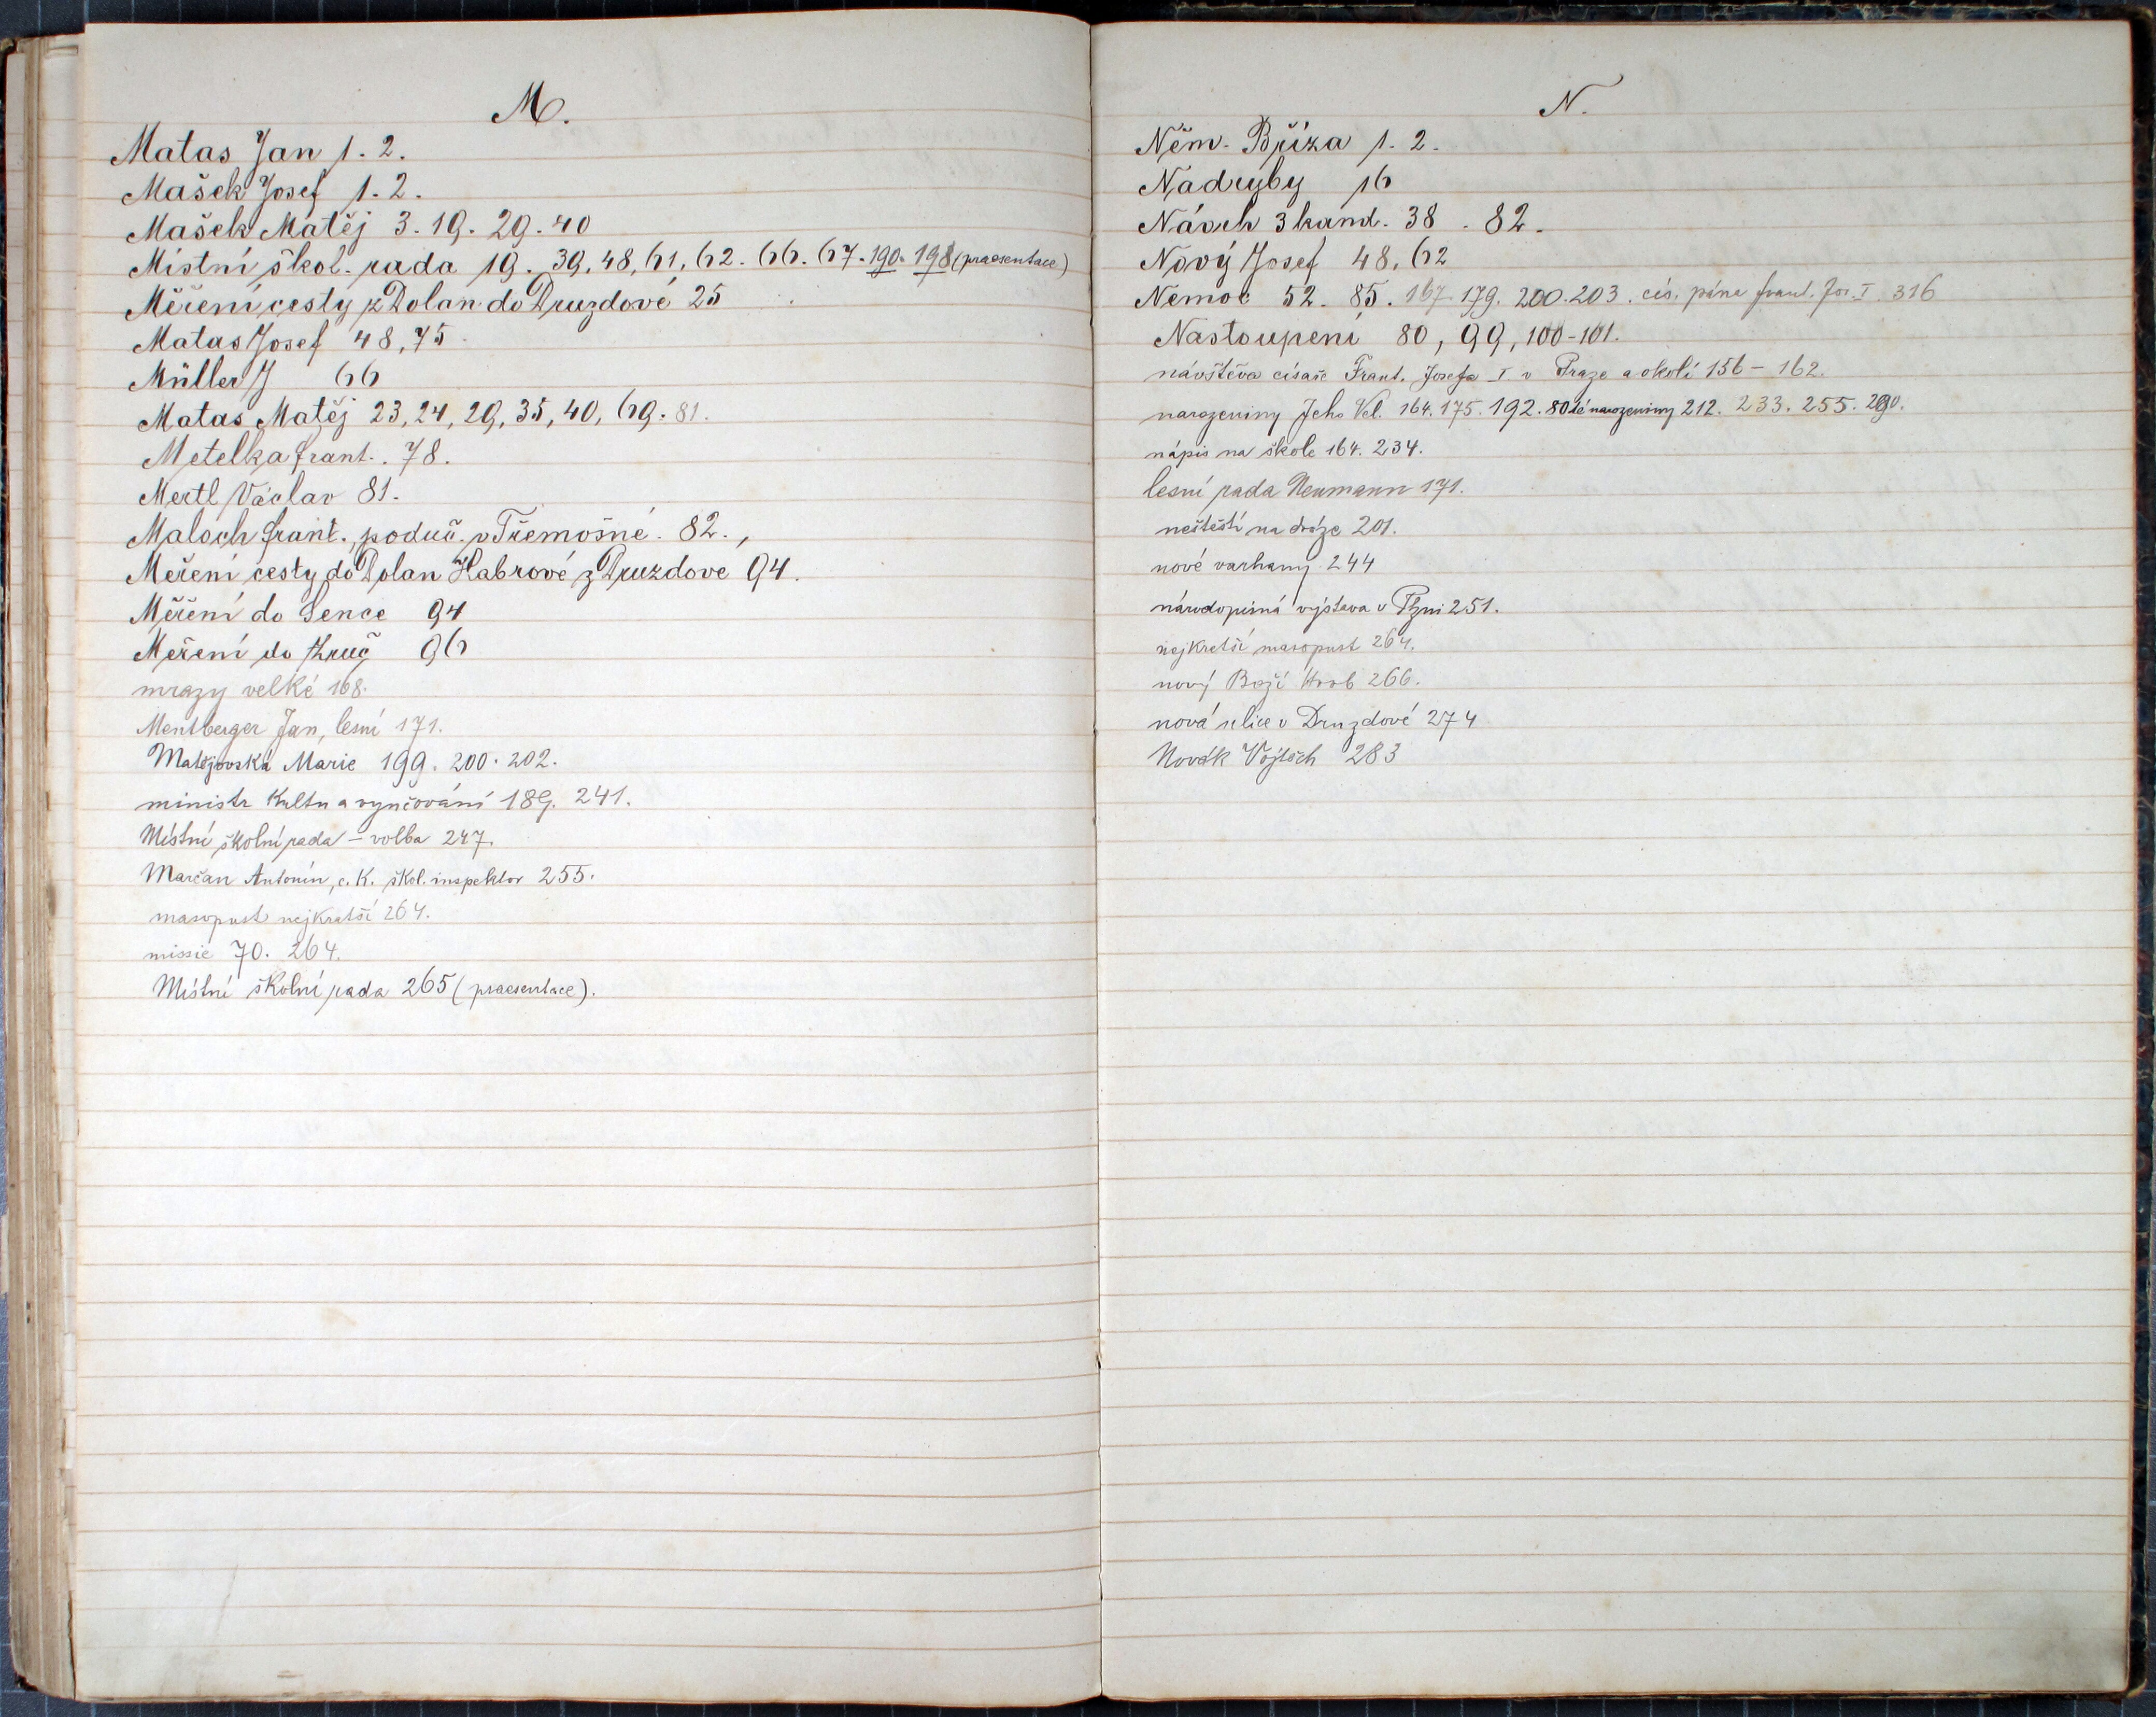 M.
Matas Jan 1. 2.
Mašek Josef 1. 2.
Mašek Matěj 3. 19. 29. 40
Místní škol. rada 19. 39, 48, 61, 62. 66. 67. 190. 198 (praesentace)
Měření cesty z Dolan do Druzdové 25
Matas Josef 48, 75
Müller J 66
Matas Matěj 23, 24, 29, 35, 40, 69. 81.
Metelka Frant. 78.
Mertl Václav 81.
Maloch Frant., poduč. v Třemošné. 82.,
Meření cesty do Dolan Habrové z Druzdove 94.
Měření do Sence 94
Meření do Zruč 96
mrazy velké 168.
Mentberger Jan, lesní 171.
Matějovská Marie 199. 200. 202.
ministr kultu a vyučování 189. 241.
Místní školní rada – volba 247.
Marčan Antonín, c. k. škol. inspektor 255.
masopust nejkratší 264.
missie 70. 264.
Místní školní rada 265 (praesentace).
N.
Něm. Bříza 1. 2.
Nadryby 16
Návrh 3 kand. 38. 82.
Nový Josef 48, 62
Nemoc 52. 85. 167 179. 200. 203. cís. pána Frant. Jos. I. 316
Nastoupení 80, 99, 100-101.
návštěva císaře Frant. Josefa I v Praze a okolí 156 – 162.
narozeniny Jeho Vel. 164. 175. 192. 80té narozeniny 212. 233. 255. 290.
nápis na škole 164. 234.
lesní rada Neumann 171.
neštěstí na dráze 201.
nové varhany 244
národopisná výstava v Plzni 251.
nejkratší masopust 264.
nový Boží Hrob 266.
nová ulice v Druzdové 274
Novák Vojtěch 283